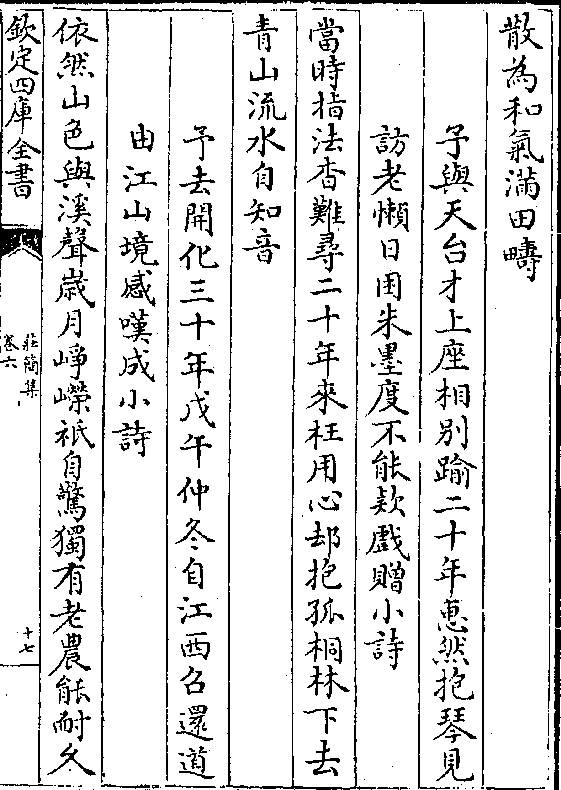 散為和氣滿田疇
予與天台才上座相别踰二十年惠然抱琴見
訪老懶日困朱墨度不能欵戲贈小詩
當時指法杳難尋二十年來枉用心却抱孤桐林下去
青山流水自知音
予去開化三十年戊午仲冬自江西召還道
由江山境感嘆成小詩
依然山色與溪聲歳月崢嶸祇自驚獨有老農能耐久
欽定四庫全書
莊簡集
卷六
十七